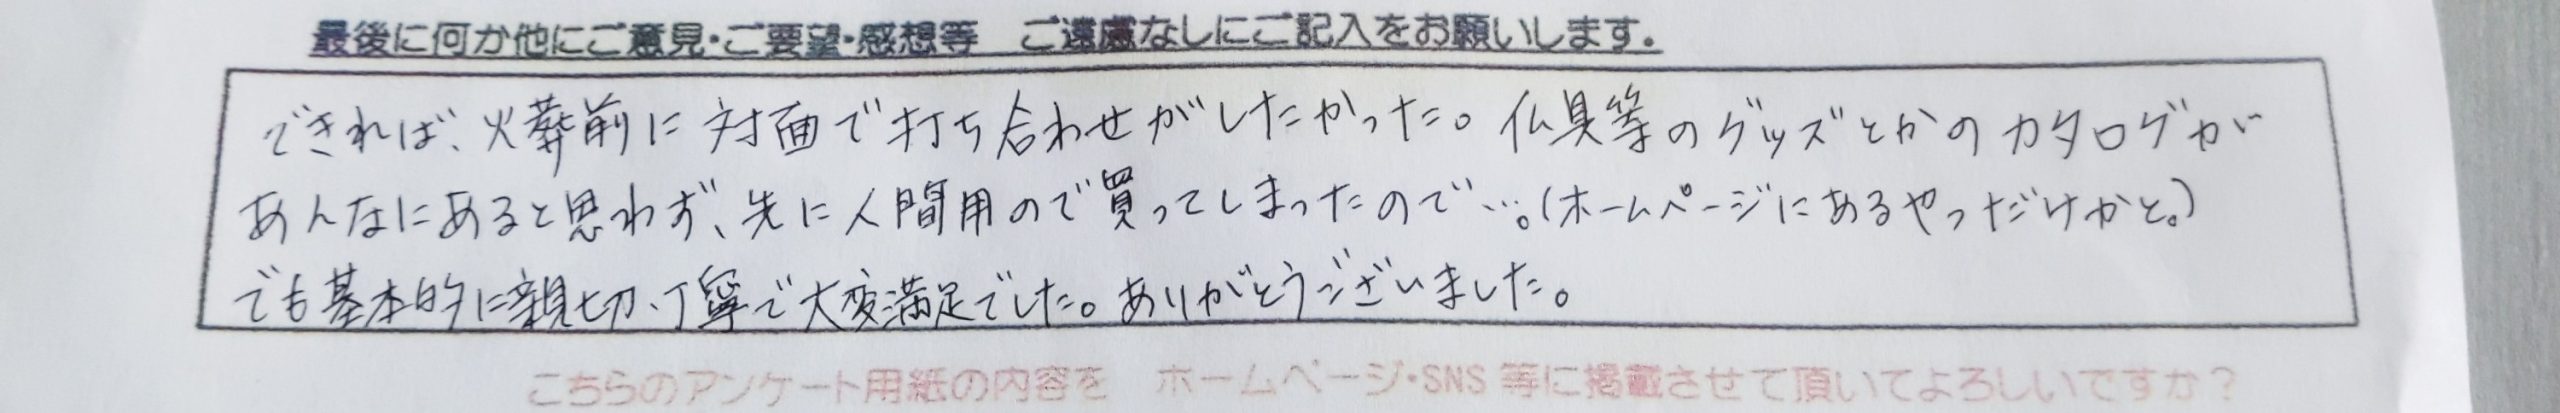 最後に何か他にご意見・ご要望・感想等　ご遠慮なしにご記入をお願いします。
できれば、火葬前に対面で打ち合わせがしたかった。仏具等のグッズとかのカタログが
あんなにあると思わず、先に人間用ので買ってしまったので…。(ホームページにあるやつだけかと。)
でも基本的に親切、丁寧で大変満足でした。ありがとうございました。
こちらのアンケート用紙の内容を　ホームページ・SNS 等に掲載させて頂いてよろしいですか？